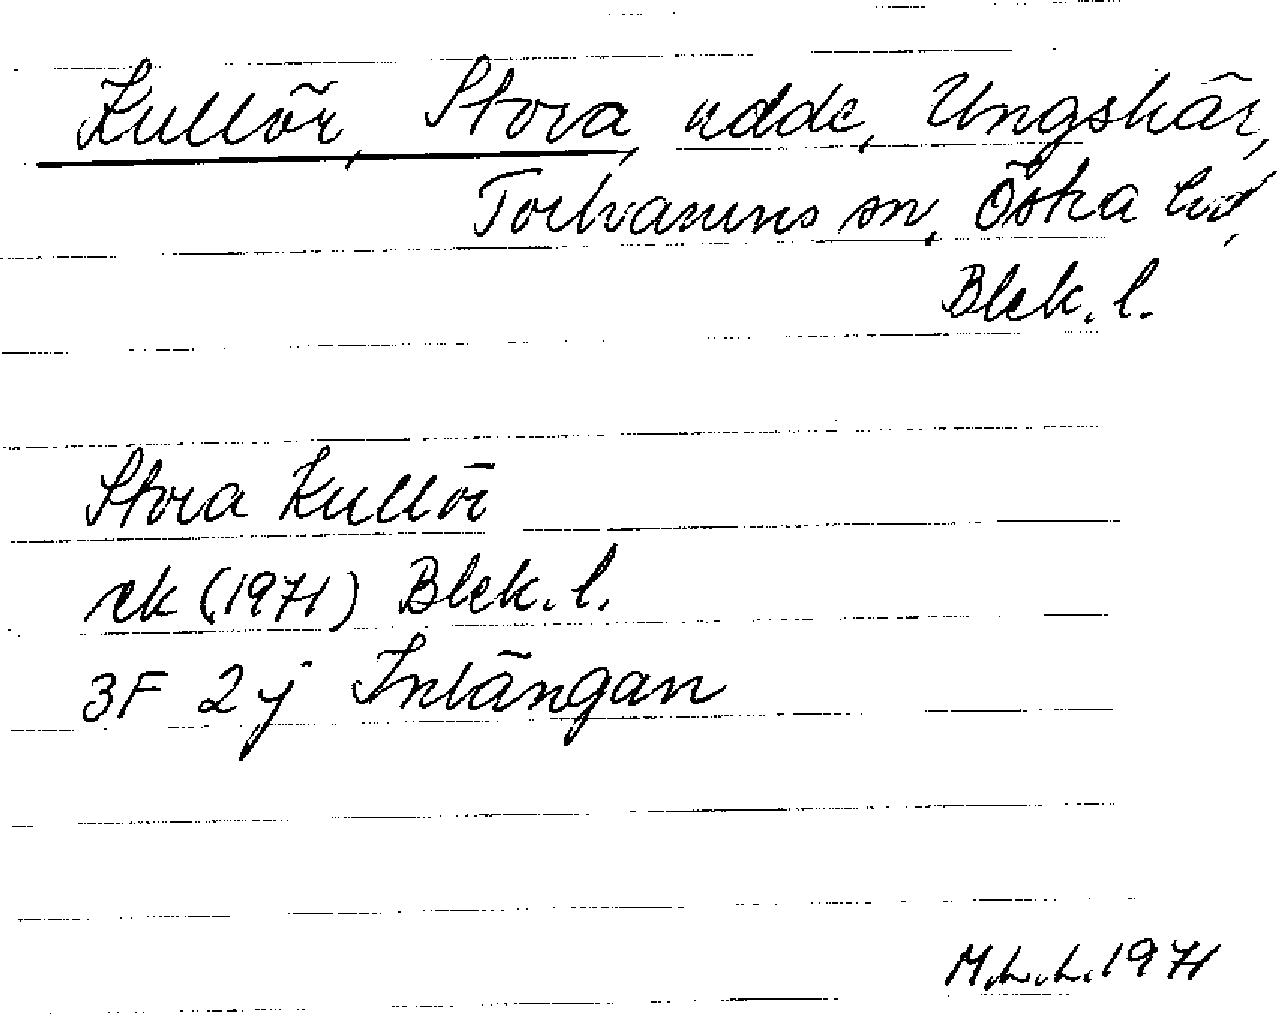 Kullör, Stora, udde, Ungskär,
Torhamns sn, Östra hd,
Blek. l.
Stora Kullör
ek (1971) Blek. l.
3F 2j Inlängan
M.L.L. 1971